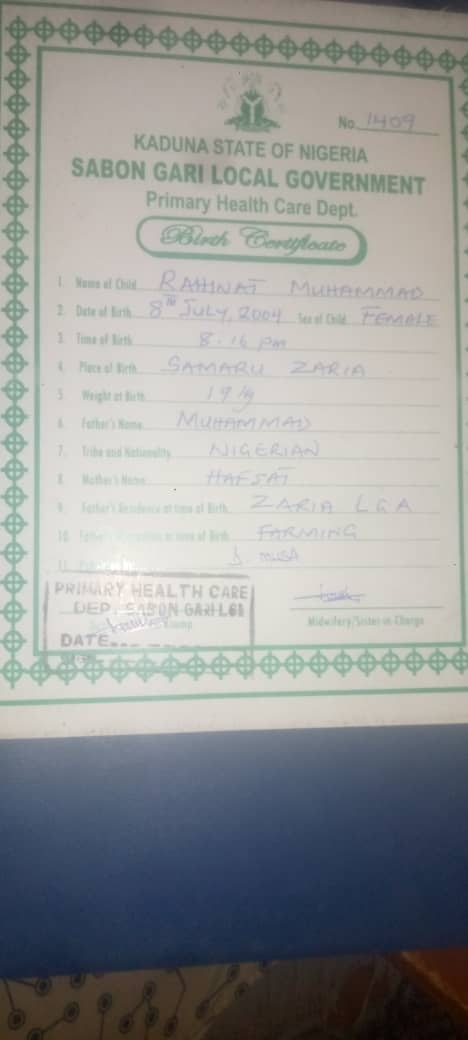 No. 1409
KADUNA STATE OF NIGERIA
SABON GARI LOCAL GOVERNMENT
Primary Health Care Dept.
Birth Certificate
1. Name of Child RAHNAT MUHAMMAD
2. Date of Birth 8TH JULY, 2004 Sex of Child FEMALE
3. Time of Birth 8.16 pm
4. Place of Birth SAMARU ZARIA
5. Weight at Birth
6. Father's Name MUHAMMAD
7. Tribe and Nationality NIGERIAN
8. Mother's Name HAFSAT
9. Father's Residence at time of Birth ZARIA LGA
10. Father's Occupation at time of Birth FARMING
11. MUSA
PRIMARY HEALTH CARE
DEP. SABON GARI LGA
Stamp
Midwifery/Sister-in-Charge
DATE